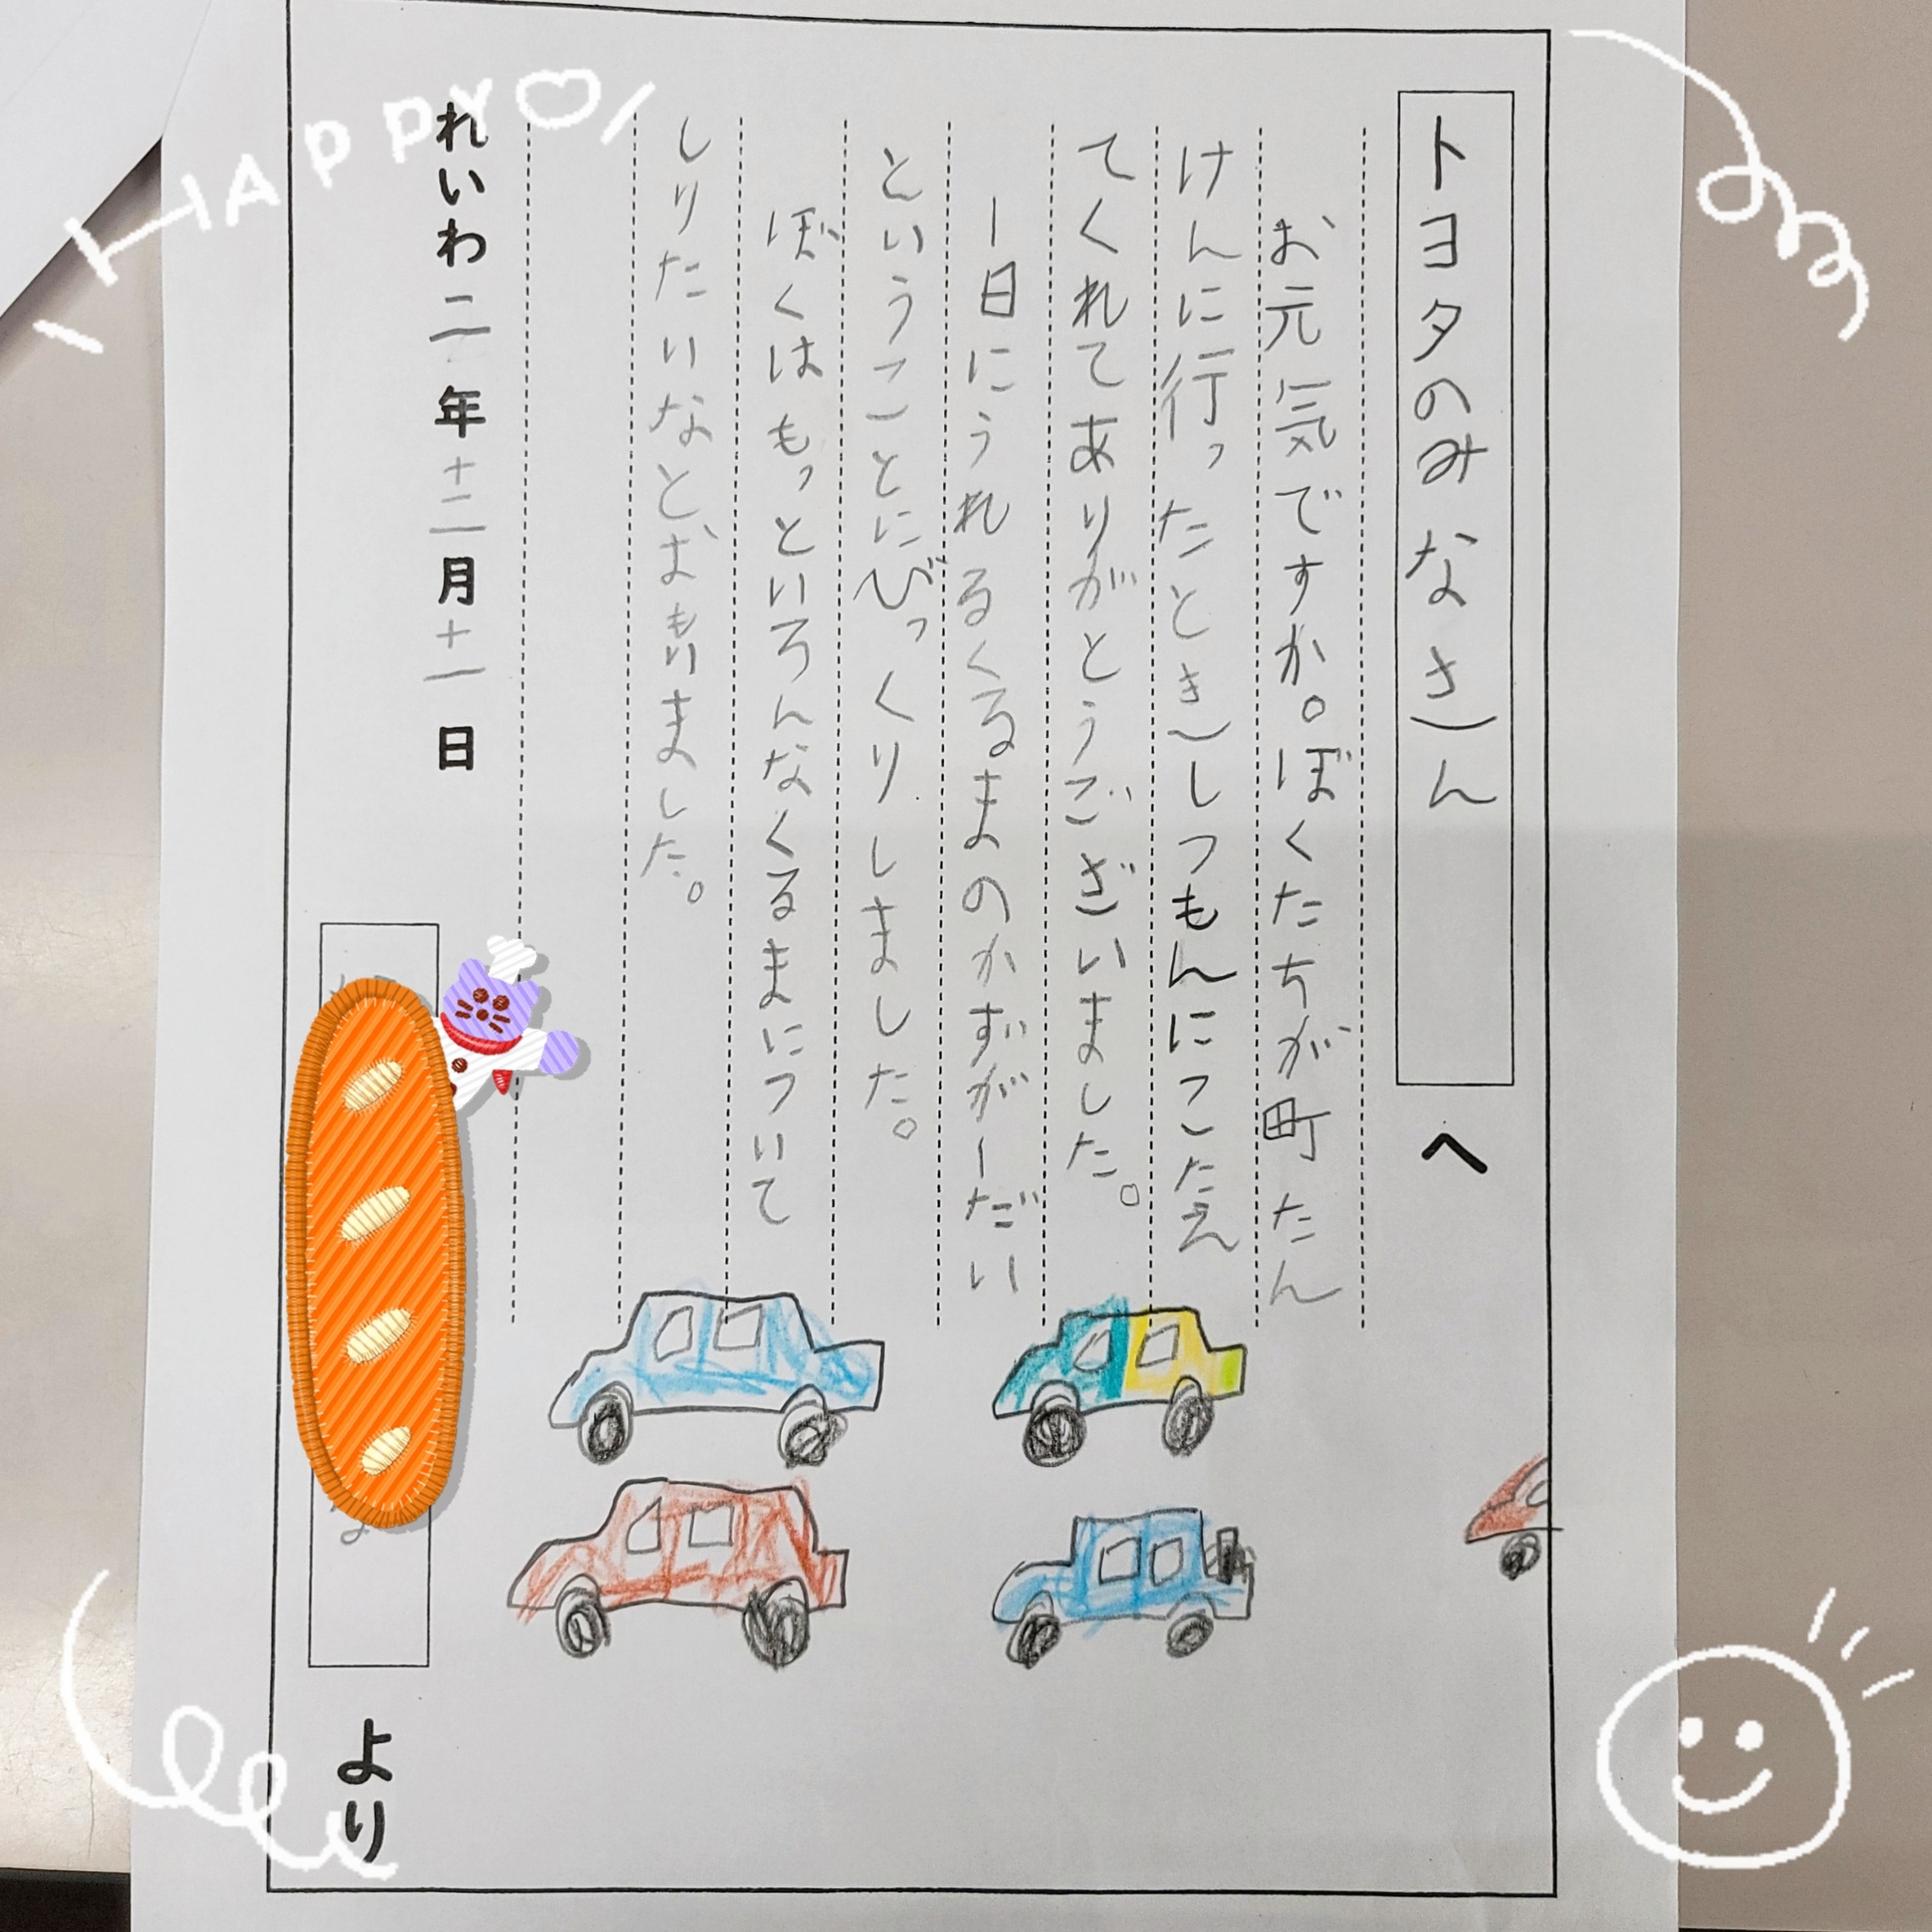 HAPPY
トヨタのみなさん へ
お元気ですか。ぼくたちが町たん
けんに行ったときしつもんにこたえ
てくれてありがとうございました。
一日にうれるくるまのかずが一だい
ということにびっくりしました。
ぼくはもっといろんなくるまについて
しりたいなとおもいました。
れいわ二年十二月十一日
より